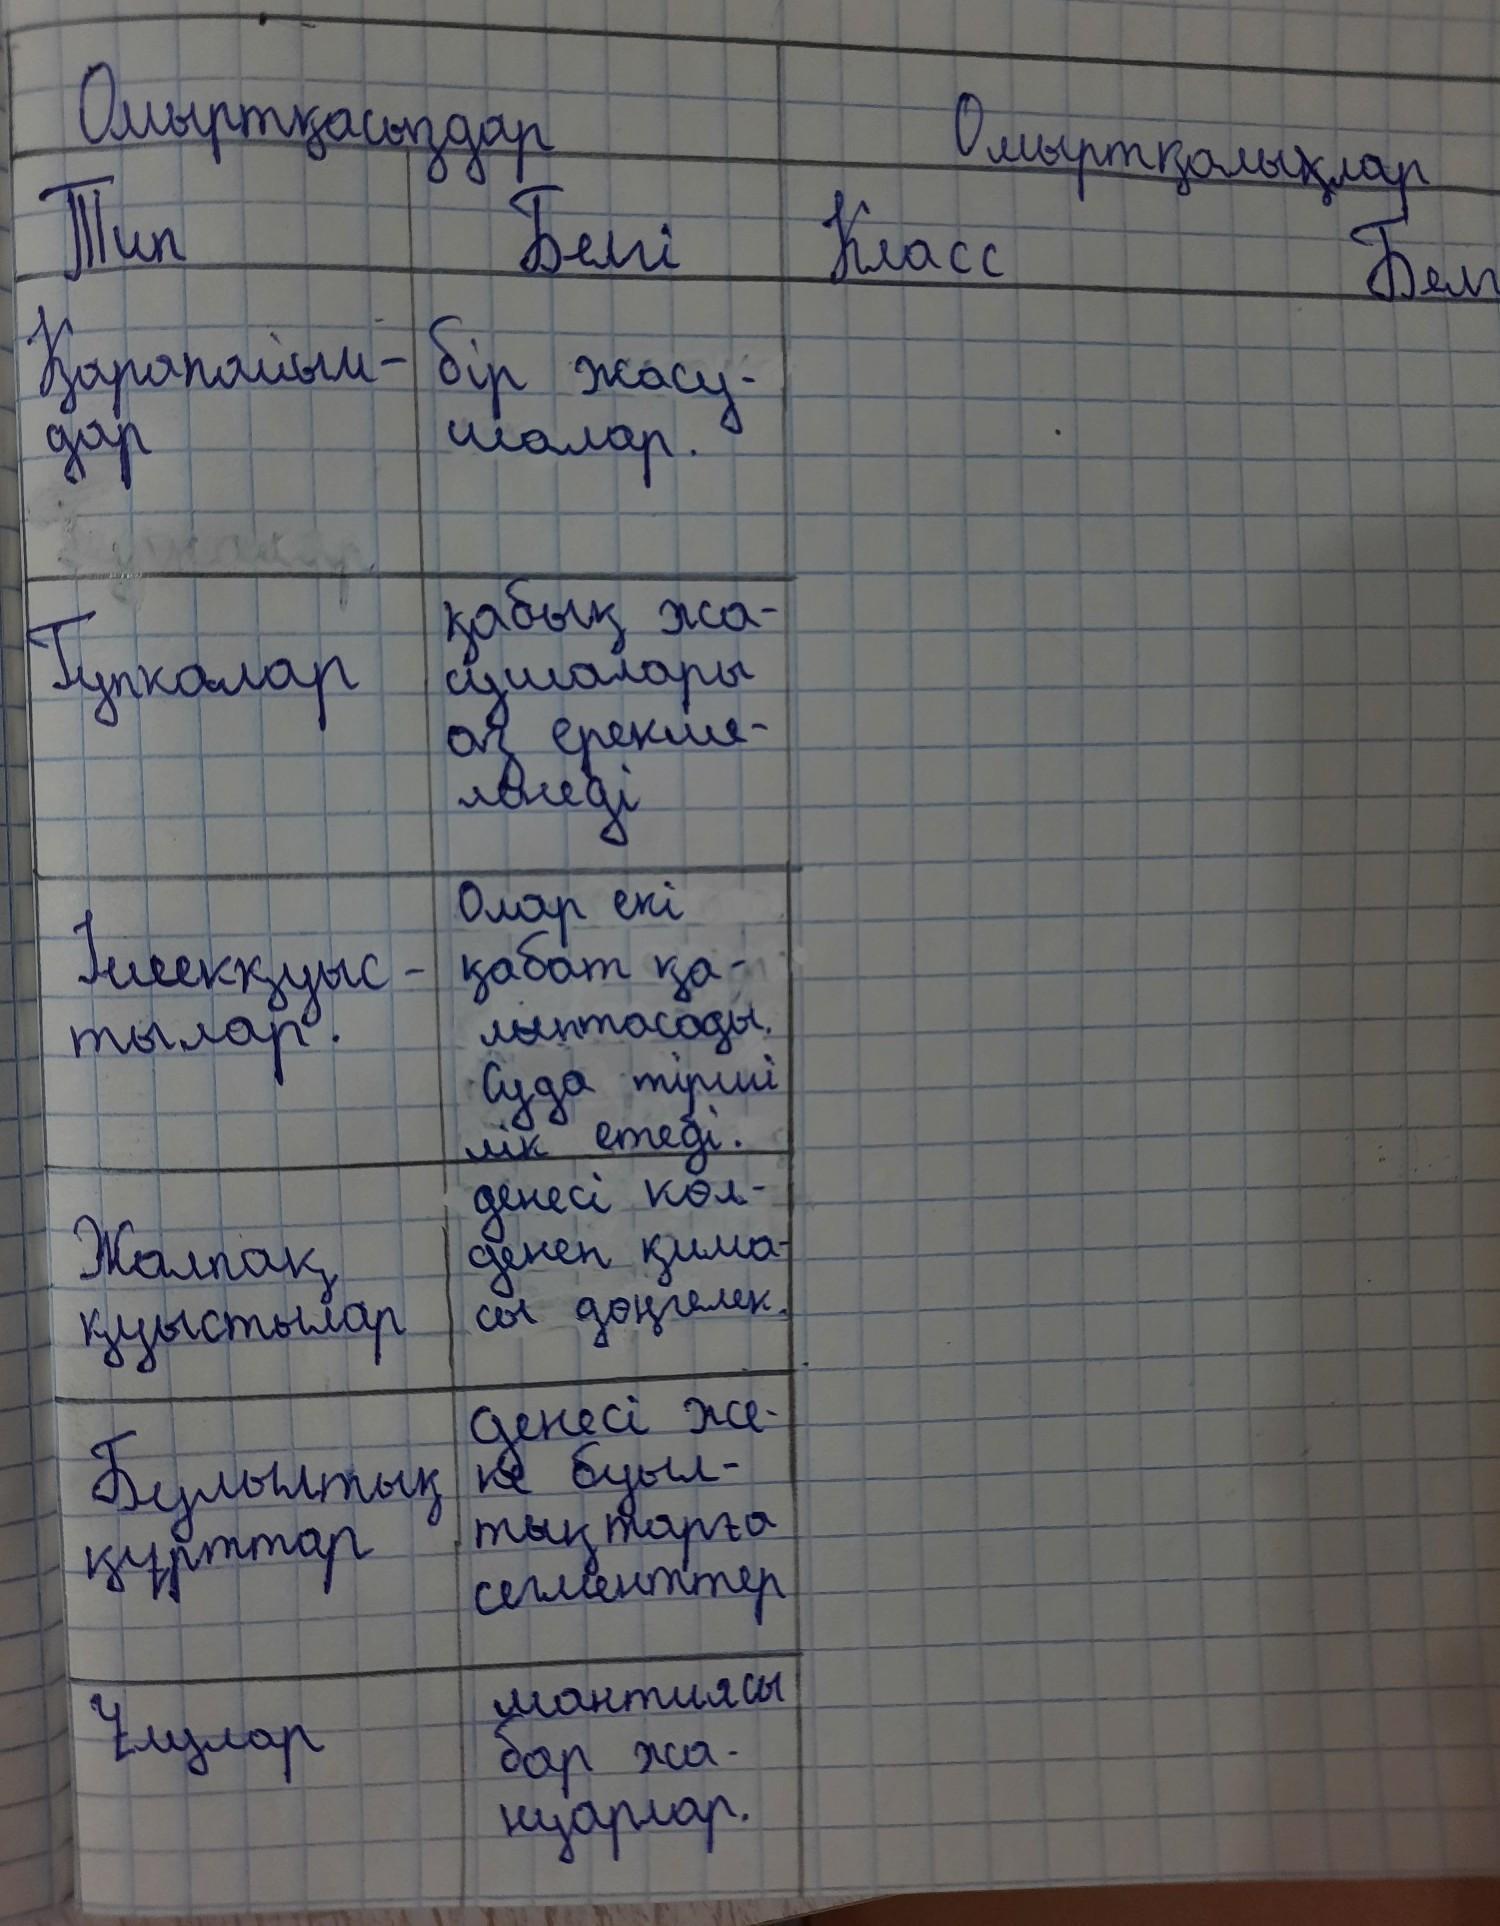 Омыртқасыздар
Омыртқалықлар
Тип
Белгі
Класс
Белг
Қарапайым-
дар
бір жасу-
шалар.
Губкалар
қабық жа-
сушалары
аз ерекше-
ленеді
Ішекқуыс-
тылар.
Олар екі
қабат қа-
лыптасады.
Суда тірші
лік етеді.
Жалпақ
қуыстылар
денесі көл-
денен қима-
сы дөңгелек.
Буылтық
құрттар
денесі же-
ке буыл-
тықтарға
сегменттер
Ұлулар
мантиясы
бар жа-
нуарлар.